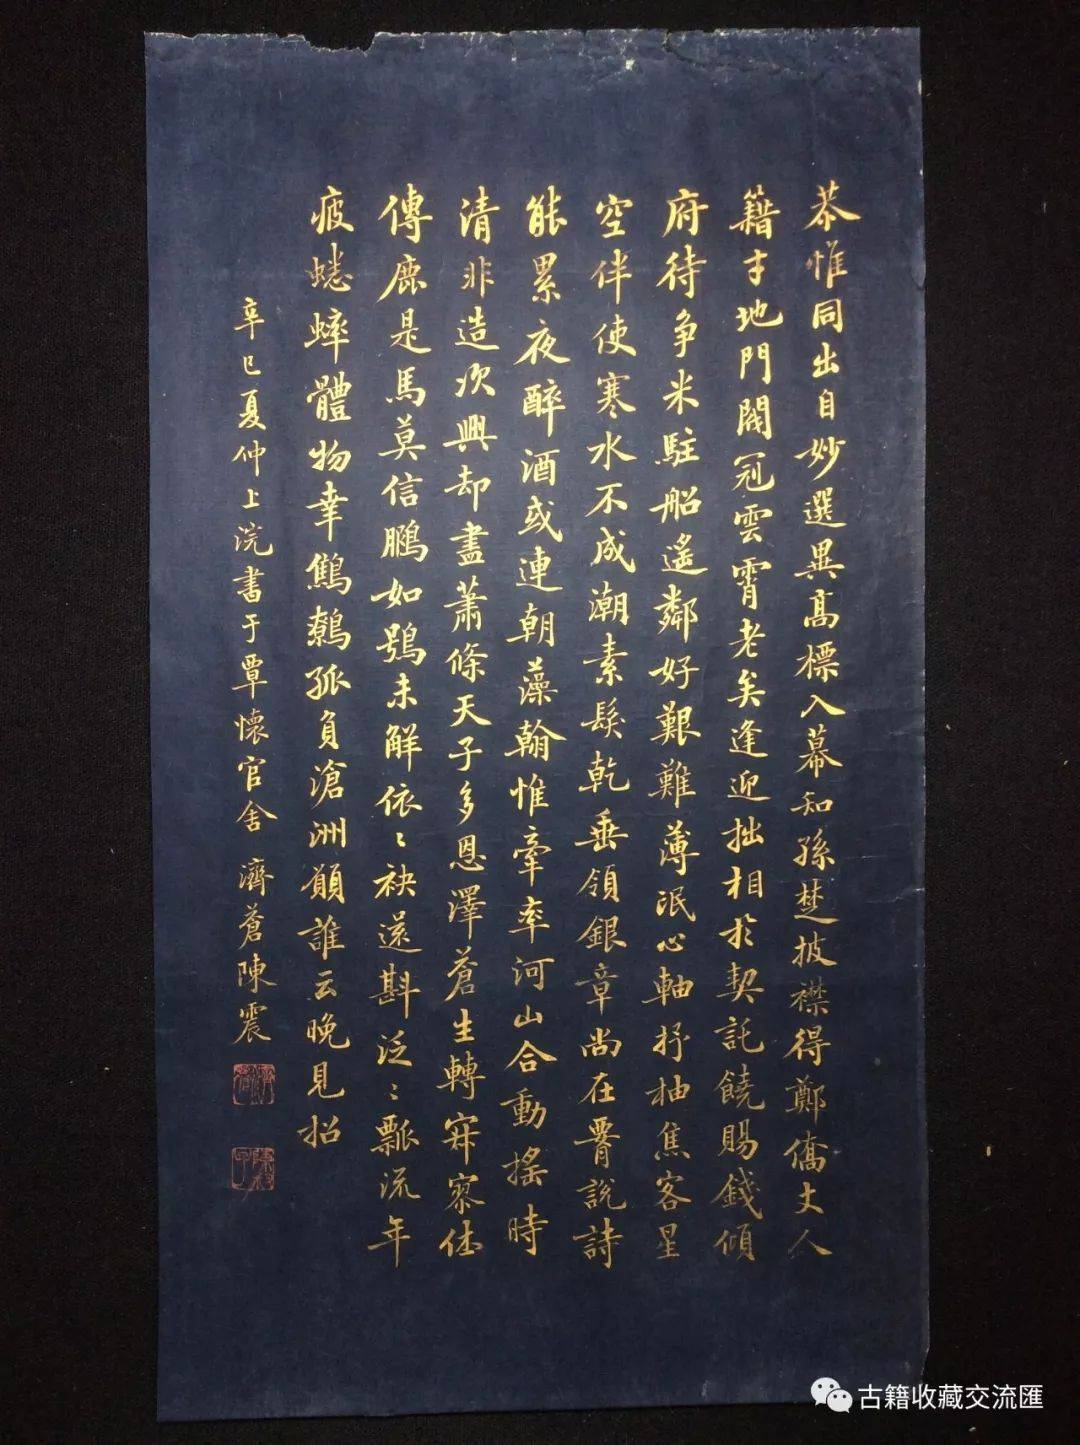 忝惟同出自妙選異高標入幕知孫楚披襟得鄭僑丈人
籍才地門閥冠雲霄老矣逢迎拙相於契託饒賜錢傾
府待爭米駐船遙鄰好艱難薄泯心軸抒柚焦客星
空伴使寒水不成潮素髮乾垂領銀章尚在要說詩
能累夜醉酒或連朝藻翰惟牽率河山合動搖時
清非造次興却盡蕭條天子多恩澤蒼生轉寂寥休
傳鹿是馬莫信鵬如鴞未解依〻袂還斟泛〻瓢流年
疲蟋蟀體物幸鷦鷯孤負滄洲願誰云晚見招
辛巳夏仲上浣書于覃懷官舍 濟蒼陳震
古籍收藏交流匯